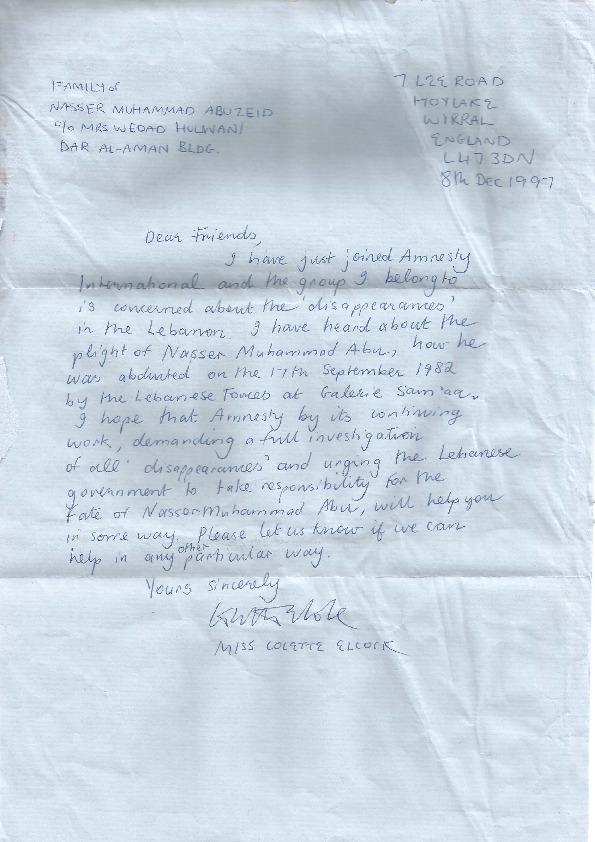 FAMILY of
NASSER MUHAMMAD ABUZEID
c/o MRS WEDAD HULWANI
DAR AL-AMAN BLDG.
7 LEE ROAD
HOYLAKE
WIRRAL
ENGLAND
L47 3DN
8th Dec 1997
Dear Friends,
I have just joined Amnesty
International and the group I belong to
is concerned about the 'disappearances'
in the Lebanon. I have heard about the
plight of Nasser Muhammad Abu, how he
was abducted on the 17th September 1982
by the Lebanese Forces at Galerie Sam'aa.
I hope that Amnesty by its continuing
work, demanding a full investigation
of all 'disappearances' and urging the Lebanese
government to take responsibility for the
fate of Nasser Muhammad Abu, will help you
in some way. Please let us know if we can
help in any other particular way.
Yours sincerely
MISS COLETTE ELCOCK